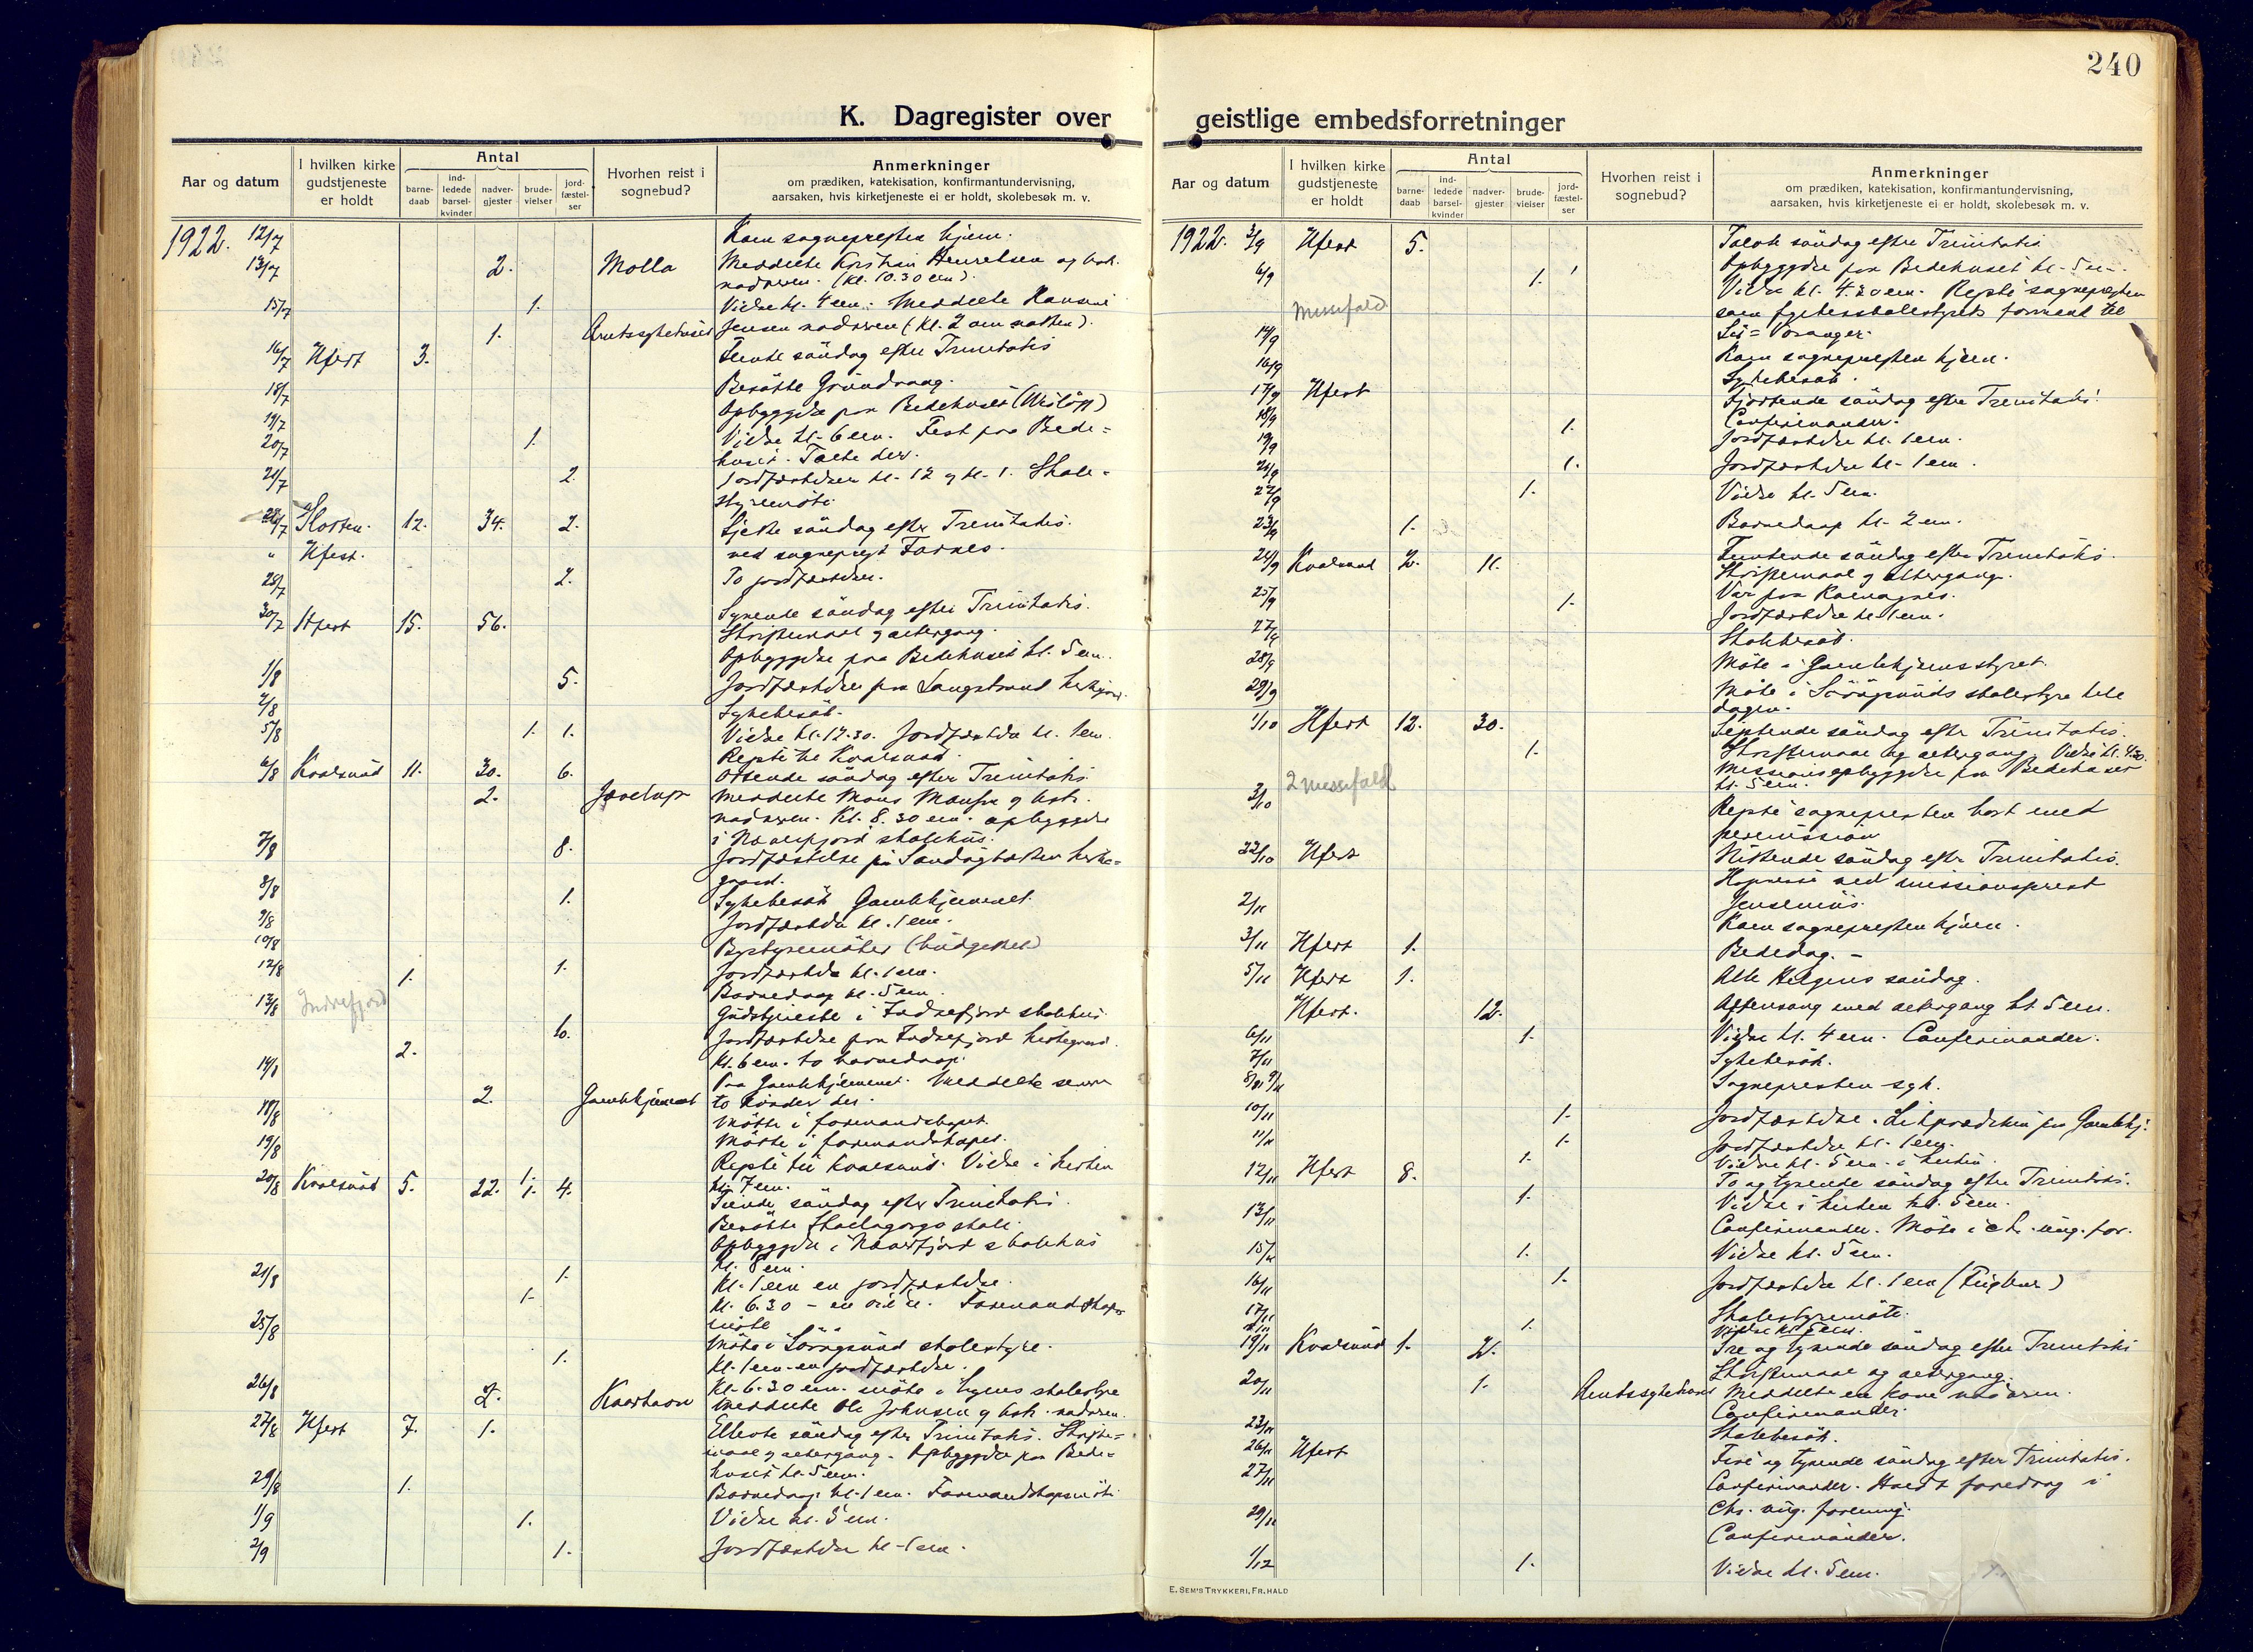 240
K. Dagregister over
geistlige embedsforretninger
Aar og datum
I hvilken kirke gudstjeneste er holdt
Antal
barne-daab
ind-ledede barsel-kvinder
nadver-gjester
brude-vielser
jord-fæstel-ser
Hvorhen reist i sognebud?
Anmerkninger
om prædiken, katekisation, konfirmantundervisning,
aarsaken, hvis kirketjeneste ei er holdt, skolebesøk m. v.
1922. 12/7 Kom sognepresten hjem.
13/7 2. Molla Meddelte Kristian Henrelsen og hst.
nadveren. (kl. 10.30 em).
15/7 1. Vielse kl. 4 em. Meddelte Hansine
1. Amtssykehuset Jensen nadveren (kl. 2 om natten).
16/7 Hfest 3. Femte søndag efter Trinitatis
Besøkte Grøndvaag.
18/7 Opbyggelse paa Bedehuset
19/7
20/7 1. Vielse kl. 6 em. Fest paa Bede=
huset. Talte der.
21/7 2. Jordfæstelser kl. 12 og kl. 1. Skole=
styremøte.
7 Skotten. 12. 34. 2. Sjette søndag efter Trinitatis.
" Hfest. ved sogneprest Farnes.
28/7 2. To jordfæstelser.
30/7 Hfest 15. 56. Syvende søndag efter Trinitatis.
Skriftemaal og altergang.
Opbyggelse paa Bedehuset kl. 5 em.
1/8 5. Jordfæstelser paa Langstrand kirkegaard.
2/8 Sykebesøk.
5/8 1. 1. Vielse kl. 12.30. Jordfæstelse kl. 1 em.
Reiste til Kvalsund.
6/8 Kvalsund 11. 30. 6. Ottende søndag efter Trinitatis
2. Meddelte Mons Monsen og hst.
nadveren. Kl. 8.30 em. opbyggelse
i Næverfjord skolehus.
7/8 8. Jordfæstelse på kirke=
gaard.
8/8 1. Sykebesøk Gamlehjemmet.
Jordfæstelse kl. 1 em.
9/8 Bystyremøter (budgettet)
10/8 1. Jordfæstelse kl. 1 em.
12/8 1. Barnedaap kl. 5 em.
13/8 Indrefjord Gudstjeneste i Indrefjord skolehus.
10. Jordfæstelse paa Indrefjord kirkegaard.
2. Kl. 6 em. to barnedaap.
14/8 Paa Gamlehjemmet. Meddelte
2. Gamlehjemmet to kvinder der.
18/8 Møtte i formandskapet.
19/8 Møtte i formandskapet.
Reiste til Kvalsund. Vielse i kirken
20/8 Kvalsund 5. 22. 1. 1. 4. kl. 7 em.
Tiende søndag efter Trinitatis.
Besøkte skole.
Opbyggelse i Næverfjord skolehus
Kl. 8 em.
21/8 1. Kl. 1 em en jordfæstelse.
1. Kl. 6.30 – en vielse. Formandskaps
møte
25/8 Møte i Sørøysund skolestyre.
1. Kl. 1 em. en jordfæstelse.
26/8 Kl. 6.30 em. møte i byens skolestyre
2. Kaarhavn Meddelte Ole Johnsen og hst. nadveren.
27/8 Hfest 7. 1. Ellevte søndag efter Trinitatis. Skrifte=
maal og altergang. Opbyggelse paa Bede=
huset kl. 5 em.
29/8 1. Barnedaap kl. 1 em. Formandskapsmøte
1/9 1. Vielse kl. 5 em.
2/9 1. Jordfæstelse kl. 1 em.
Aar og datum
I hvilken kirke gudstjeneste er holdt
Antal
barne-daab
ind-ledede barsel-kvinder
nadver-gjester
brude-vielser
jord-fæstel-ser
Hvorhen reist i sognebud?
Anmerkninger
om prædiken, katekisation, konfirmantundervisning,
aarsaken, hvis kirketjeneste ei er holdt, skolebesøk m. v.
1922. 3/9 Hfest 5. Tolvte søndag efter Trinitatis
Opbyggelse paa Bedehuset kl. 5 em.
6/9 1. Vielse kl. 4.30 em. Reiste sognepresten
Messefald som fylkesskolestyrets formand til
Syd=Varanger.
14/9 Kom sognepresten hjem.
16/9 Sykebesøk.
17/9 Hfest Fjortende søndag efter Trinitatis.
18/9 Confirmander.
19/9 1. Jordfæstelse kl. 1 em.
21/9 1. Jordfæstelse kl. 1 em.
22/9 1. Vielse kl. 5 em.
23/9 1. Barnedaap kl. 2 em.
24/9 Kvalsund 2. 11. Femtende søndag efter Trinitatis.
Skriftemaal og altergang.
25/9 Var paa Kvenagnes.
1. Jordfæstelse kl. 1 em.
27/9 Skolebesøk.
28/9 Møte i Gamlehjemsstyret.
29/9 Møte i Sørøysunds skolestyre hele
dagen.
1/10 Hfest 12. 30. Sejstende søndag efter Trinitatis.
1. Skriftemaal og altergang. Vielse kl. 4.30.
Missionsopbyggelse paa Bedehuset
kl. 5 em.
3/10 2 messefald Reiste sognepresten bort med
permission
22/10 Hfest Nittende søndag efter Trinitatis.
Høimesse ved missionsprest
Jensenius.
2/11 Kom sognepresten hjem.
3/11 Hfest 1. Bededag. –
5/11 Hfest 1. Alle Helgens søndag.
Hfest. 12. Aftensang med altergang kl. 5 em.
6/11 1. Vielse kl. 4 em. Confirmander.
7/11 Sykebesøk.
8/11 9/11 Sognepresten syk.
10/11 1. Jordfæstelse. Likprædiken paa Gamlehj.
11/11 1. Jordfæstelse kl. 1 em.
1. Vielse kl. 5 em. i kirken.
12/11 Hfest 8. To og tyvende søndag efter Trinitatis.
1. Vielse i kirken kl. 5 em.
13/11 Confirmander. Møte i ch. ung. for.
15/11 1. Vielse kl. 5 em.
16/11 1. Jordfæstelse kl. 1 em (Fuglenes)
17/11 Skolestyremøte.
1. Vielse kl. 5 em.
19/11 Kvalsund 1. 2. Tre og tyvende søndag efter Trinitatis
Skriftemaal og altergang.
20/11 1. Amtssykehuset Meddelte en kone nadveren.
Confirmander.
23/11 Skolebesøk.
26/11 Hfest Fire og tyvende søndag efter Trinitatis.
27/11 Confirmander. Holdt foredrag i
Chr. ung. forening.
29/11 Confirmander.
1/12 1. Vielse kl. 5 em.
E. SEM'S TRYKKERI, FR.HALD